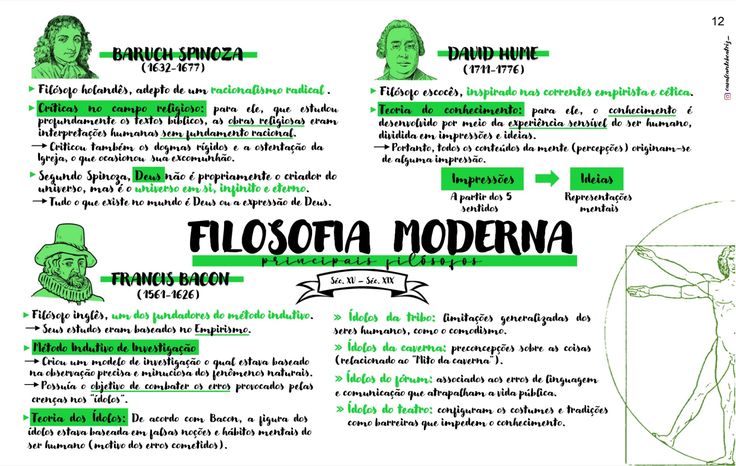 12
BARUCH SPINOZA
(1632-1677)
▸ Filósofo holandês, adepto de um racionalismo radical.
▸ Críticas no campo religioso: para ele, que estudou
profundamente os textos bíblicos, as obras religiosas eram
interpretações humanas sem fundamento racional.
→ Criticou também os dogmas rígidos e a ostentação da
Igreja, o que ocasionou sua excomunhão.
▸ Segundo Spinoza, Deus não é propriamente o criador do
universo, mas é o universo em si, infinito e eterno.
→ Tudo o que existe no mundo é Deus ou a expressão de Deus.
DAVID HUME
(1711-1776)
▸ Filósofo escocês, inspirado nas correntes empirista e cética.
▸ Teoria do conhecimento: para ele, o conhecimento é
desenvolvido por meio da experiência sensível do ser humano,
disidida em impressões e ideias.
→ Portanto, todos os conteúdos da mente (percepções) originam-se
de alguma impressão.
Impressões → Ideias
A partir dos 5
sentidos
Representações
mentais
FILOSOFIA MODERNA
principais filósofos
Séc. XV - Séc. XIX
FRANCIS BACON
(1561-1626)
▸ Filósofo inglês, um dos fundadores do método indutivo.
→ Seus estudos eram baseados no Empirismo.
▸ Método Indutivo de Investigação
→ Criou um modelo de investigação o qual estava baseado
na observação precisa e minuciosa dos fenômenos naturais.
→ Possuía o objetivo de combater os erros provocados pelas
crenças nos "ídolos".
▸ Teoria dos Ídolos: De acordo com Bacon, a figura dos
ídolos estava baseada em falsas noções e hábitos mentais do
ser humano (motivo dos erros cometidos).
» Ídolos da tribo: limitações generalizadas dos
seres humanos, como o comodismo.
» Ídolos da caverna: preconcepções sobre as coisas
(relacionado ao "Mito da caverna").
» Ídolos do fórum: associados aos erros de linguagem
e comunicação que atrapalham a vida pública.
» Ídolos do teatro: configuram os costumes e tradições
como barreiras que impedem o conhecimento.